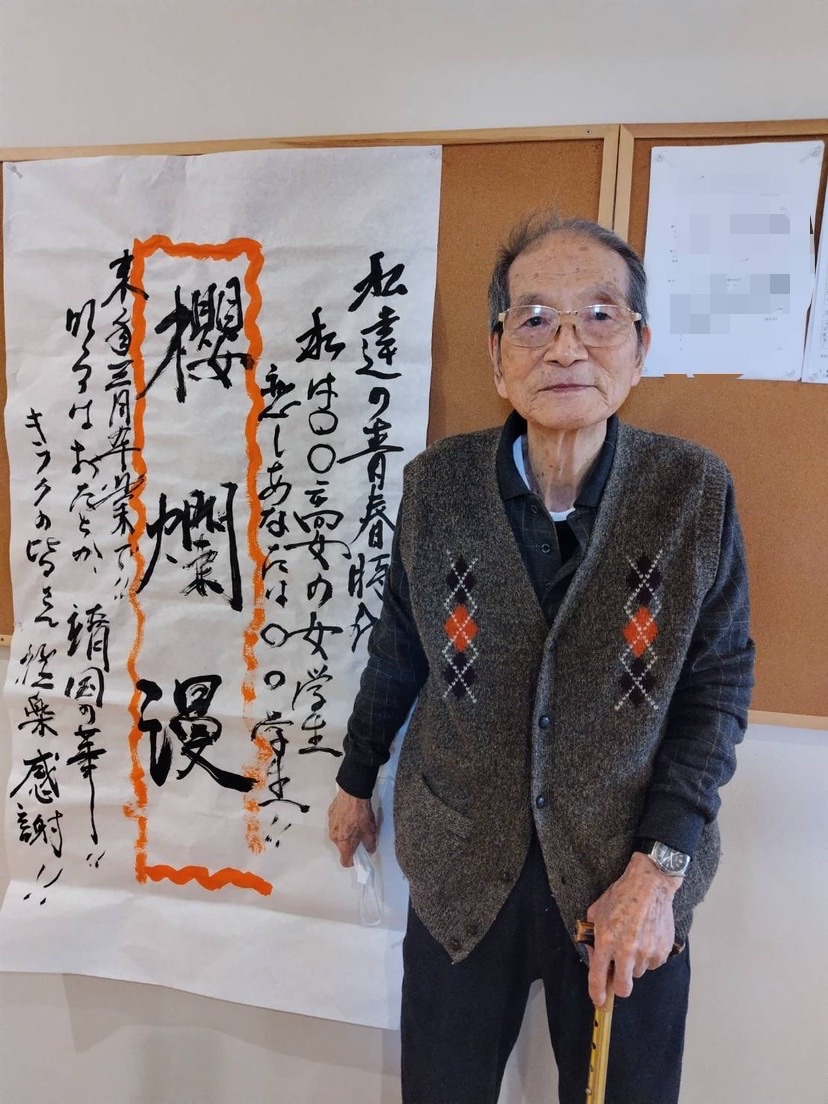 私達の青春時
私は〇〇高女の女学生
恋しあなたは〇〇学生!!
櫻爛漫
来年三月卒業で!!
靖国の華!!
キラクの皆さん極楽感謝!!